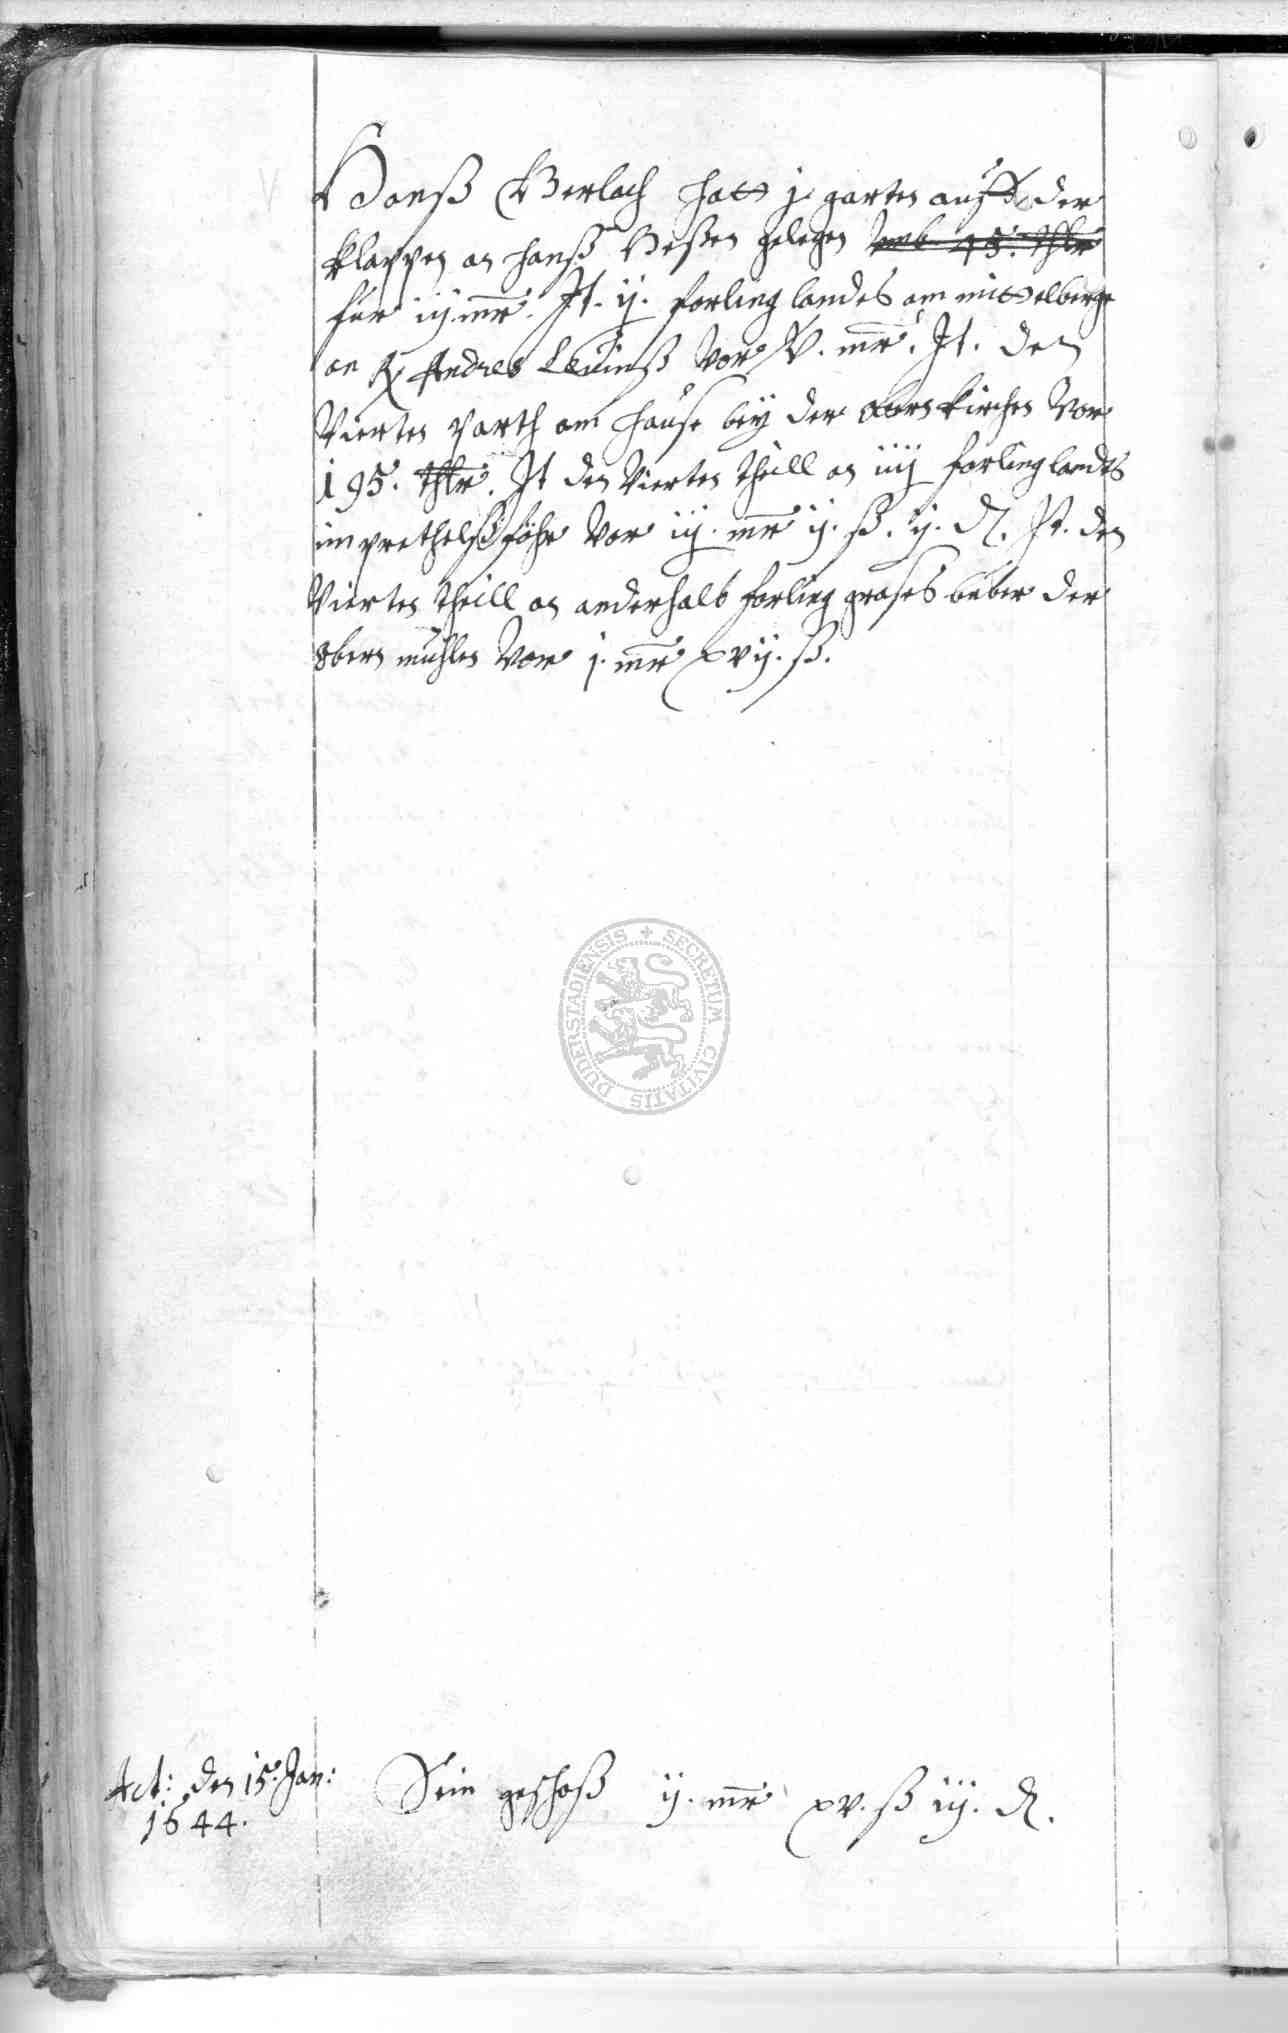 Hanß Gerlach hatt j. garten auff der
klappen an hanß Hesen gelegen vmb 45. thlr
für iij. mr. It. ij. forling landes am mittelberge
an Andres Levinß vor v. mr. It. den
Vierten parth am hause bey der obern kirchen vor
195. thlr. It den Vierten theill an iiij forling landes
im prethelßföhr vor iij. mr ij. ß. ij. d. It. den
Vierten theill an anderhalb forling grases bober der
obern mühlen vor j. mr xvij. ß.
SECRETUM CIVITATIS DUDERSTADIENSIS
Act: den 15. Jan:
1644.
Sein geschoß ij. mr xv. ß iij. d.